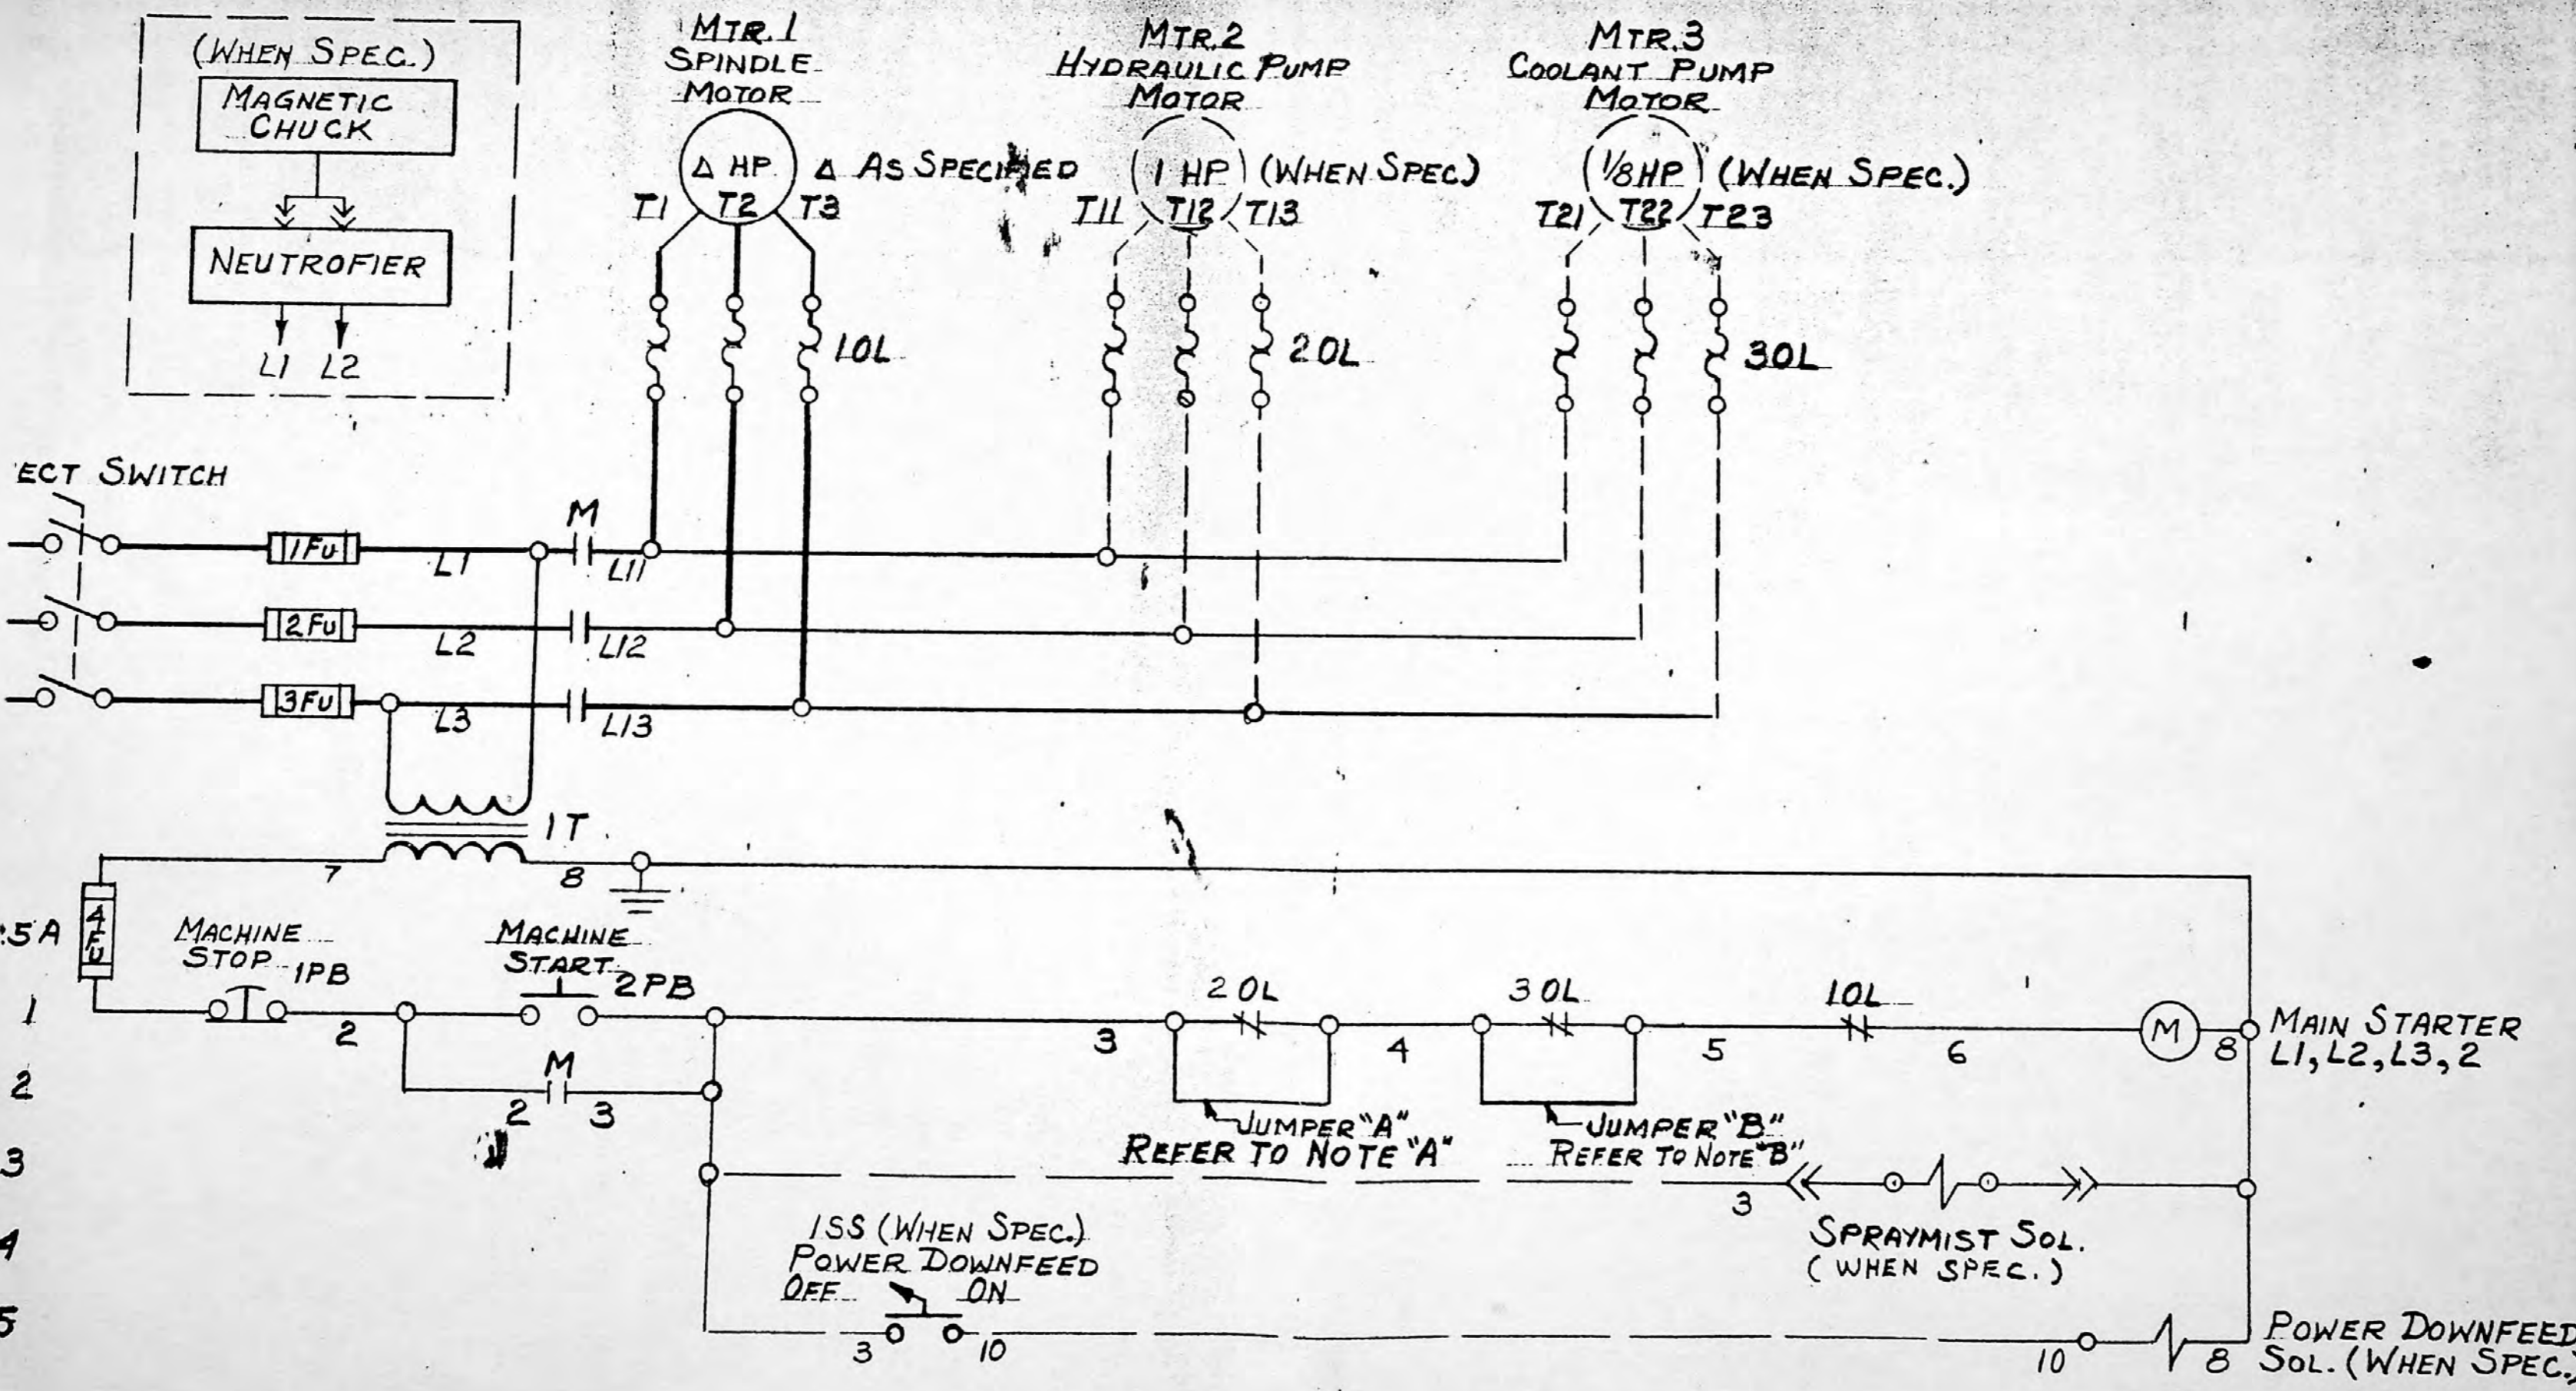 (WHEN SPEC.)
MAGNETIC
CHUCK
NEUTROFIER
L1 L2
MTR.1
SPINDLE
MOTOR
Δ HP
Δ AS SPECIFIED
T1 T2 T3
1OL
MTR.2
HYDRAULIC PUMP
MOTOR
1 HP
(WHEN SPEC)
T11 T12 T13
2OL
MTR.3
COOLANT PUMP
MOTOR
1/8 HP
(WHEN SPEC.)
T21 T22 T23
3OL
ECT SWITCH
1FU
L1
M
L11
2FU
L2
L12
3FU
L3
L13
1T
7
8
.5A
4FU
MACHINE
STOP 1PB
MACHINE
START 2PB
2OL
3OL
1OL
1
2
3
4
5
6
M
8
MAIN STARTER
L1, L2, L3, 2
2
M
2
3
JUMPER "A"
REFER TO NOTE "A"
JUMPER "B"
REFER TO NOTE "B"
3
3
SPRAYMIST SOL.
(WHEN SPEC.)
4
1SS (WHEN SPEC.)
POWER DOWNFEED
OFF ON
5
3
10
10
8
POWER DOWNFEED
SOL. (WHEN SPEC.)